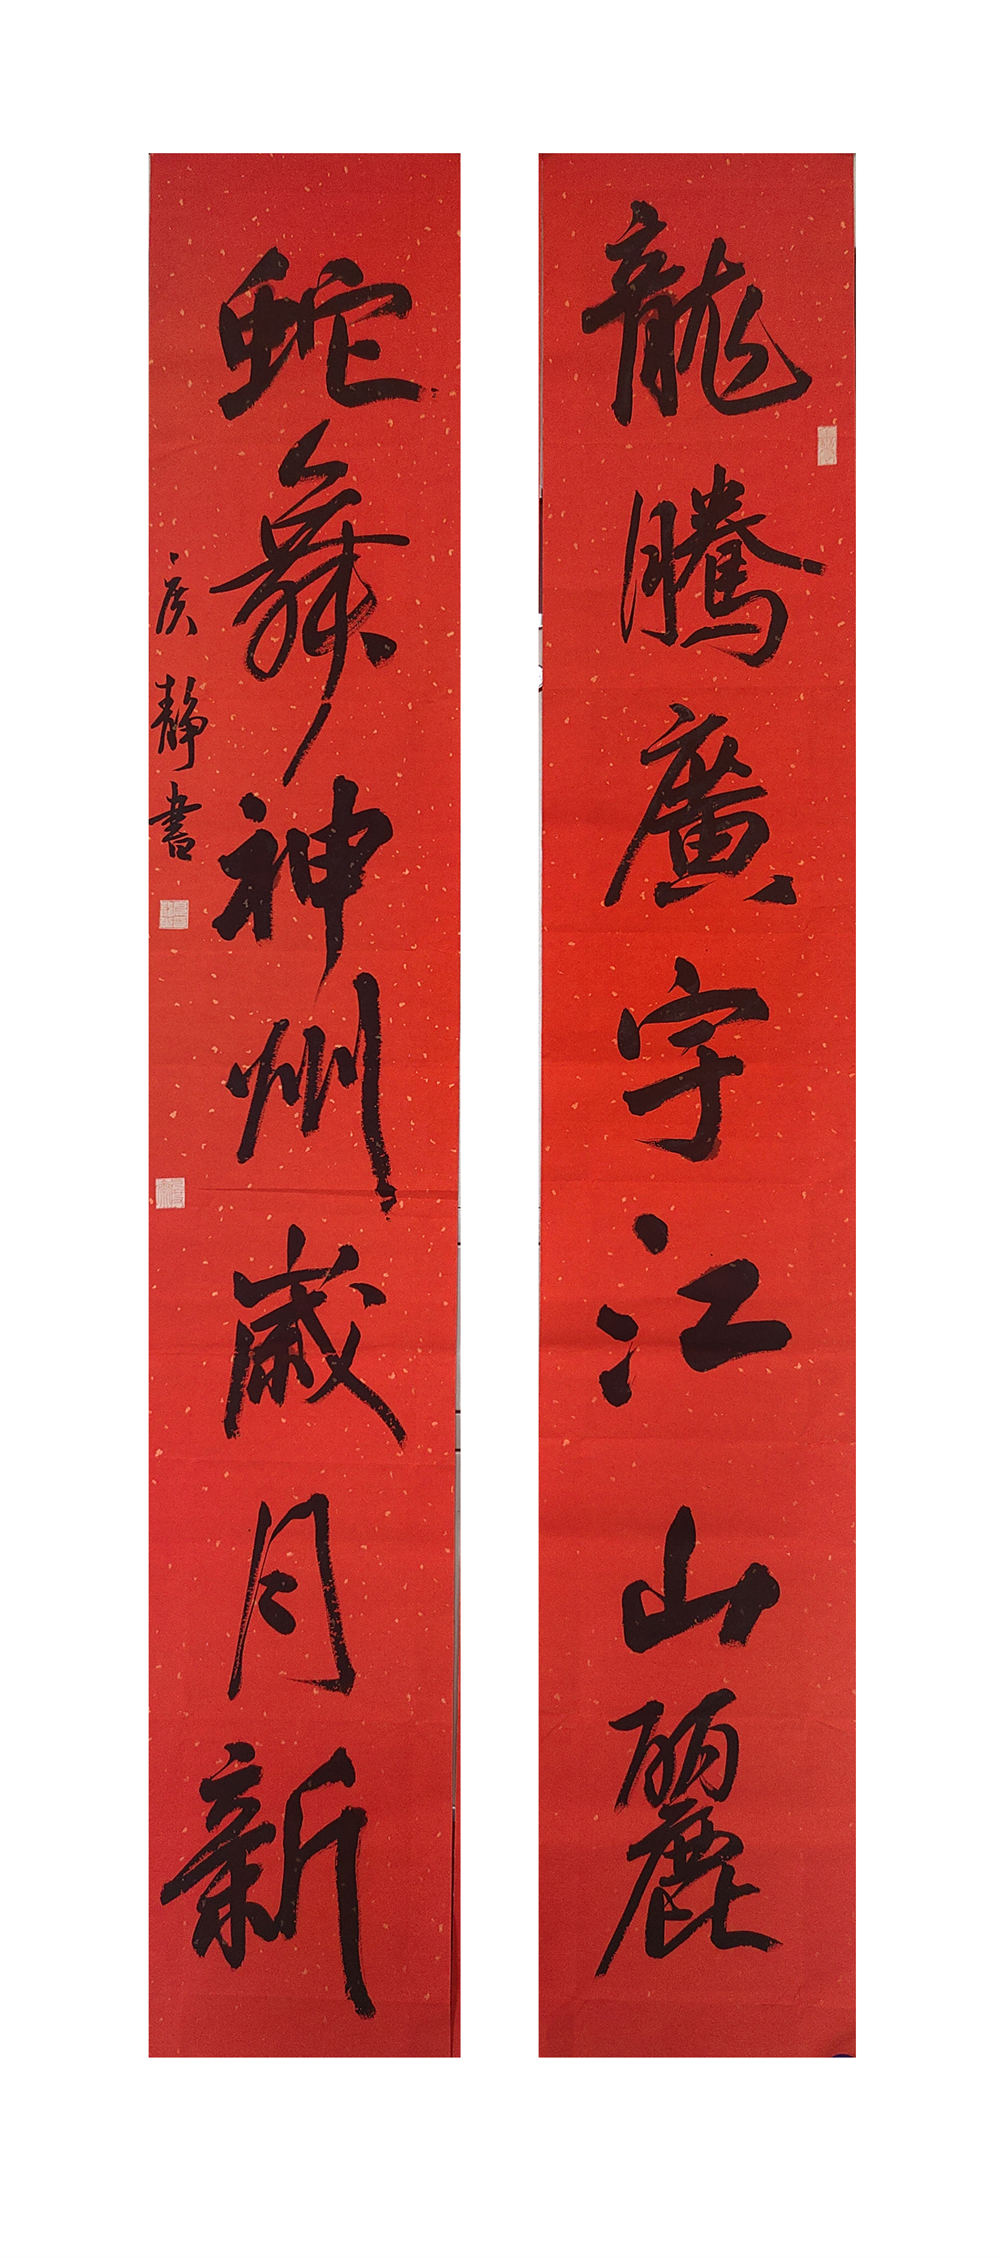 龍騰廣宇江山麗
蛇舞神州歲月新
侯靜書